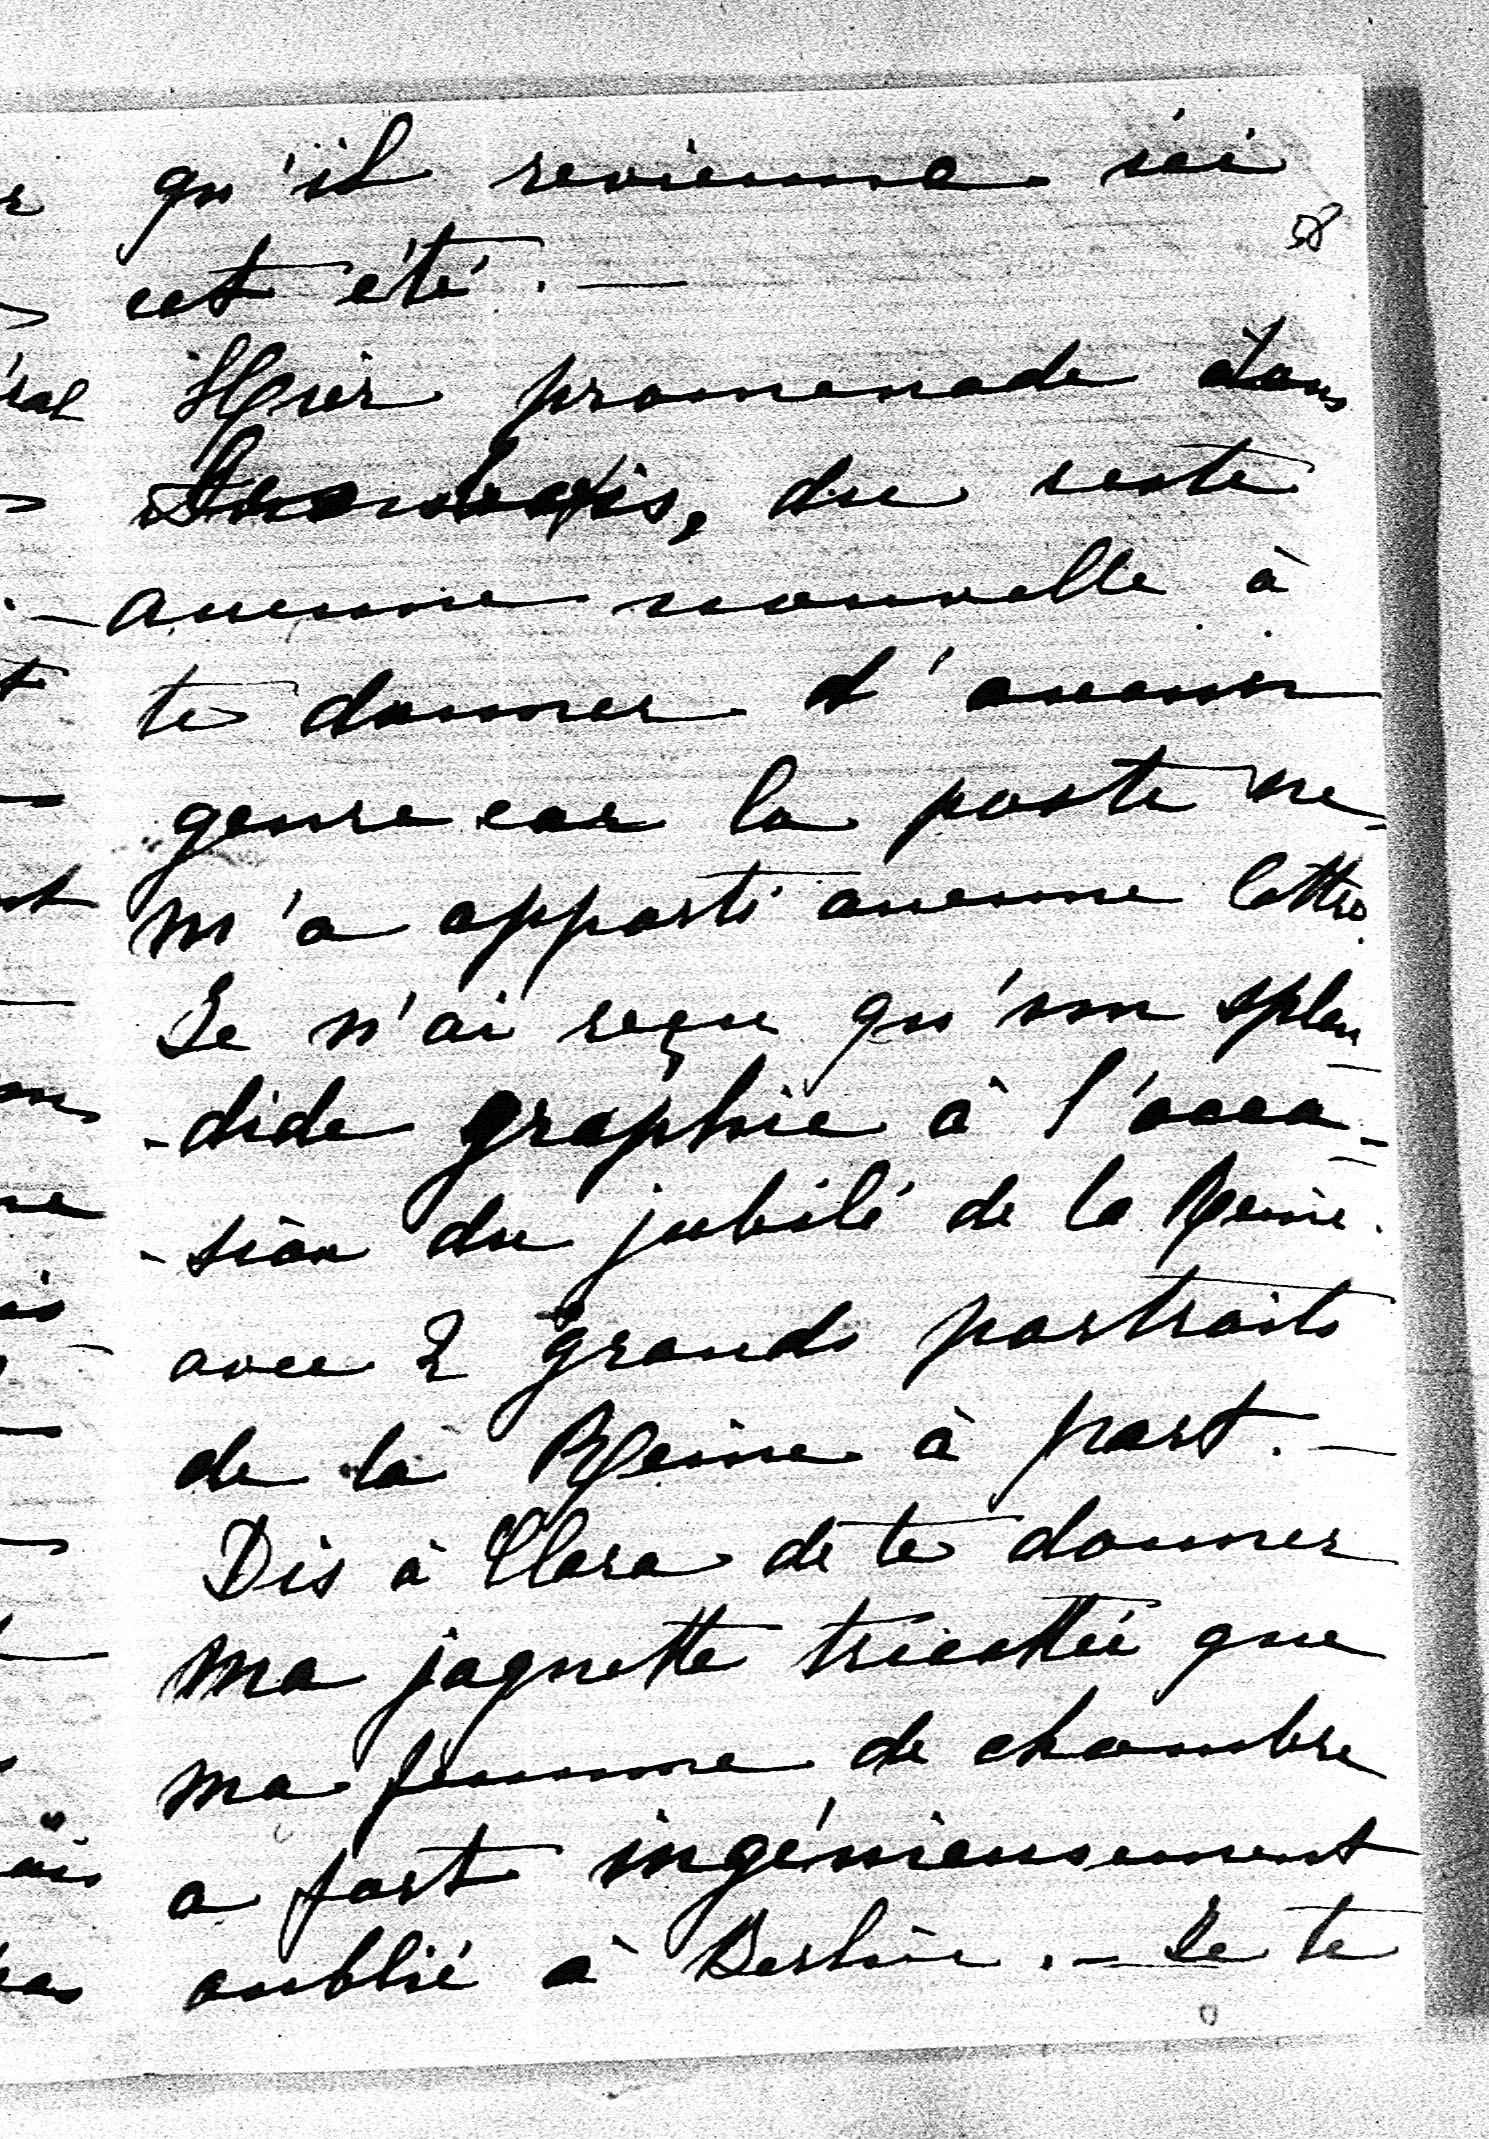 qu'il revienne ici
58
cet été. —
Hier promenade dans
les bois, du reste
aucune nouvelle à
te donner d'aucun
genre car la poste ne
m'a apporté aucune lettre.
Je n'ai reçu qu'un splen
-dide graphic à l'occa-
-sion du jubilé de la Reine.
avec 2 grands portraits
de la Reine à part. —
Dis à Clara de te donner
ma jaquette tricottée que
ma femme de chambre
a fort ingénieusement
oublié à Berlin. — Je te